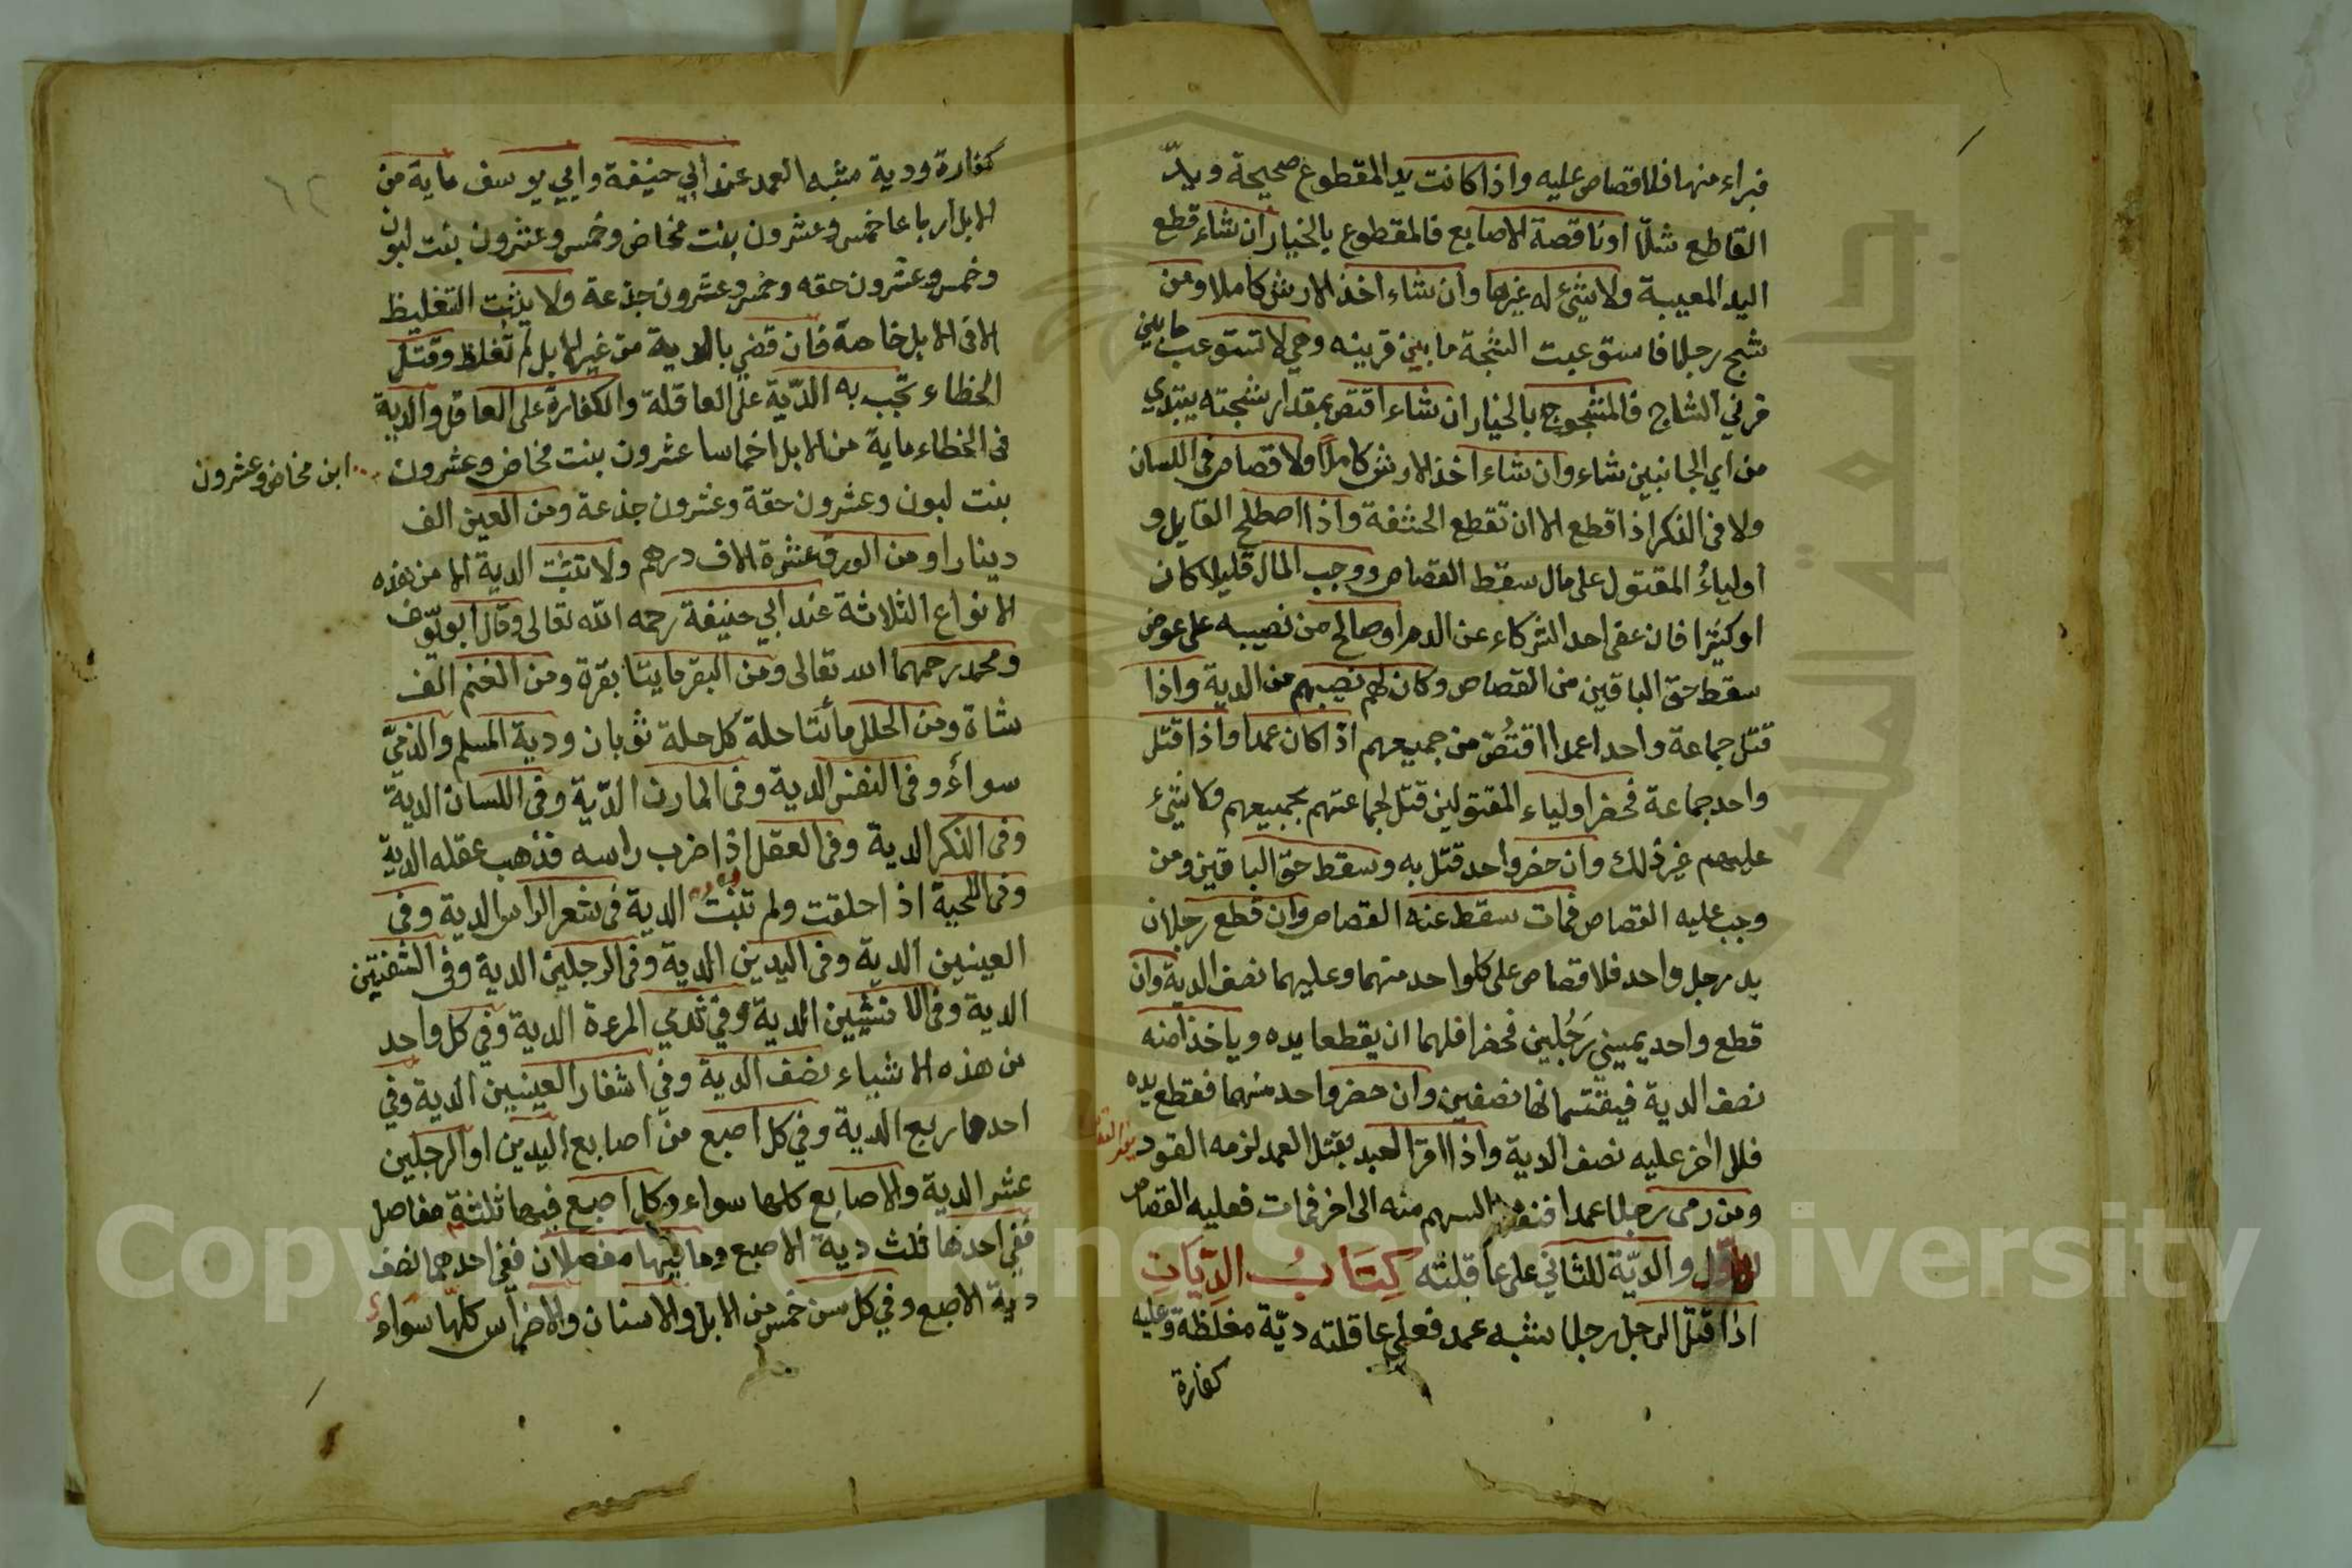 فبراء منها فلا قصاص عليه واذا كانت يد المقطوع صحيحة ويد
القاطع شلّا اوناقصة الاصابع فالمقطوع بالخيار ان شاء قطع
اليد المعيبة ولا شئ له غيرها وان شاء اخذ الارش كاملا ومن
شج رجلا فاستوعبت الشجة ما بين قرينه وهي لا تستوعب ما بين
قرني الشاج فالمشجوج بالخيار ان شاء اقتص بمقدار شجته يبتدي
من اي الجانبين شاء وان شاء اخذ الارش كاملاً ولا قصاص فى اللسان
ولا فى الذكر اذا قطع الا ان تقطع الحشفة واذا اصطلح القايل و
اولياءُ المقتول على مال سقط القصاص ووجب المال قليلا كان
او كثيرا فان عفى احد الشركاء عن الدم او صالح من نصيبه على عوض
سقط حق الباقين من القصاص وكان لهم نصيبهم من الدية واذا
قتل جماعة واحدا عمدا اقتُصّ من جميعهم اذا كان عمدا واذا قتل
واحد جماعة فحضر اولياء المقتولين قتل لجماعتهم بجميعهم ولا شئ
عليهم غير ذلك وان حضر واحد قتل به وسقط حق الباقين ومن
وجب عليه القصاص فمات سقط عنه القصاص وان قطع رجلان
يد رجل واحد فلا قصاص على كلواحد منهما وعليهما نصف الدية وان
قطع واحد يميني رَجُلين فحضرا فلهما ان يقطعا يده وياخذا منه
نصف الدية فيقتسمانها نصفين وان حضر واحد منهما فقطع يده
فللاخر عليه نصف الدية واذا اقر العبد بقتل العمد لزمه القود
ومن رمى رجلا عمدا فنفذ السهم منه الى اخر فمات فعليه القصاص
للاول والديّة للثاني على عاقلته كِتَابُ الدِّيَاتِ
اذا قتل الرجل رجلا شبه عمد فعلى عاقلته ديّة مغلظة وعليه
كفارة
كفارة ودية شبه العمد عند ابي حنيفة وابي يوسف ماية من
الابل ارباعا خمس وعشرون بنت مخاض وخمس وعشرون بنت لبون
وخمس وعشرون حقه وخمس وعشرون جذعة ولا يثبت التغليظ
الا فى الابل خاصة فان قضي بالدية من غير الابل لم تغلظ وقتل
الخطاء تجب به الديّة على العاقلة والكفارة على العاقل والدية
فى الخطاء ماية من الابل اخماسا عشرون بنت مخاض وعشرون
ابن مخاض وعشرون
بنت لبون وعشرون حقة وعشرون جذعة ومن العين الف
دينار او من الورق عشرة الاف درهم ولا تثبت الدية الا من هذه
الانواع الثلاثة عند ابي حنيفة رحمه الله تعالى وقال ابو يوسف
ومحمد رحمهما الله تعالى ومن البقر مايتا بقرة ومن الغنم الف
شاة ومن الحلل مأتتا حلة كل حلة ثوبان ودية المسلم والذميّ
سواءٌ وفى النفس الدية وفى المارن الديّة وفى اللسان الدية
وفى الذكر الدية وفى العقل اذا ضرب راسه فذهب عقله الدية
وفى اللحية اذا حلقت ولم تنبت الدية فى شعر الراس الدية وفى
العينين الدية وفى اليدين الدية وفى الرجلين الدية وفى الشفتين
الدية وفى الانثيين الدية وفى ثدي المرءة الدية وفي كل واحد
من هذه الاشياء نصف الدية وفي اشفار العينين الدية وفي
احدها ربع الدية وفي كل اصبع من اصابع اليدين او الرجلين
عشر الدية والاصابع كلها سواء وكل اصبع فيها ثلثة مفاصل
ففي احدها ثلث دية الاصبع وما فيها مفصلان ففي احدهما نصف
دية الاصبع وفي كل سن خمس من الابل والاسنان والاضراس كلها سواء
Copyright © King Saud University